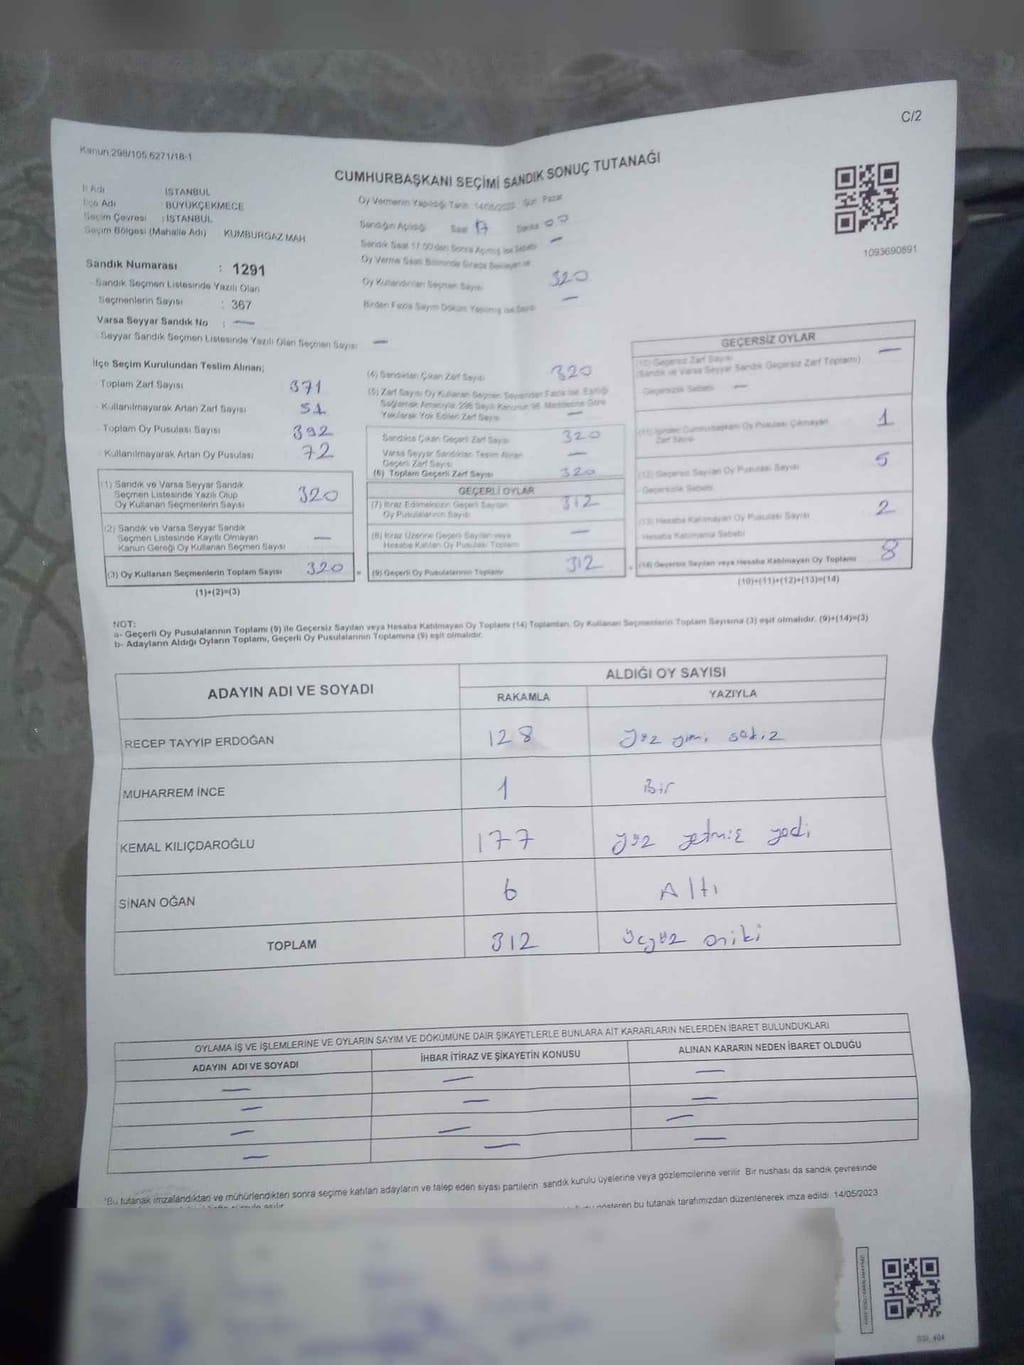 C/2
Kanun:298/105.6271/18-1
CUMHURBAŞKANI SEÇİMİ SANDIK SONUÇ TUTANAĞI
İl Adı : İSTANBUL
İlçe Adı : BÜYÜKÇEKMECE
Seçim Çevresi : İSTANBUL
Seçim Bölgesi (Mahalle Adı) KUMBURGAZ MAH
Sandık Numarası : 1291
Sandık Seçmen Listesinde Yazılı Olan
Seçmenlerin Sayısı : 367
Varsa Seyyar Sandık No : —
Seyyar Sandık Seçmen Listesinde Yazılı Olan Seçmen Sayısı —
Oy Vermenin Yapıldığı Tarih 14/05/2023 Gün Pazar
Sandığın Açıldığı Saat 17
Sandık Saat 17:00'den Sonra Açılmış ise Sebebi —
Oy Verme Saati Bitiminde Sırada Bekleyen
Oy Kullandırılan Seçmen Sayısı 320
Birden Fazla Sayım Döküm Yapılmış ise Sayısı —
1093690891
İlçe Seçim Kurulundan Teslim Alınan;
Toplam Zarf Sayısı 371
Kullanılmayarak Artan Zarf Sayısı 51
Toplam Oy Pusulası Sayısı 392
Kullanılmayarak Artan Oy Pusulası 72
(1) Sandık ve Varsa Seyyar Sandık
Seçmen Listesinde Yazılı Olup
Oy Kullanan Seçmenlerin Sayısı 320
(2) Sandık ve Varsa Seyyar Sandık
Seçmen Listesinde Kayıtlı Olmayan
Kanun Gereği Oy Kullanan Seçmen Sayısı —
(3) Oy Kullanan Seçmenlerin Toplam Sayısı 320
(1)+(2)=(3)
(4) Sandıktan Çıkan Zarf Sayısı 320
(5) Zarf Sayısı Oy Kullanan Seçmen Sayısından Fazla ise, Eşitliği
Sağlamak Amacıyla, 298 Sayılı Kanunun 98. Maddesine Göre
Yakılarak Yok Edilen Zarf Sayısı —
Sandıkta Çıkan Geçerli Zarf Sayısı 320
Varsa Seyyar Sandıktan Teslim Alınan
Geçerli Zarf Sayısı —
(6) Toplam Geçerli Zarf Sayısı 320
GEÇERLİ OYLAR
(7) İtiraz Edilmeksizin Geçerli Sayılan
Oy Pusulalarının Sayısı 312
(8) İtiraz Üzerine Geçerli Sayılan veya
Hesaba Katılan Oy Pusulası Toplamı —
(9) Geçerli Oy Pusulalarının Toplamı 312
GEÇERSİZ OYLAR
(10) Geçersiz Zarf Sayısı
(Sandık ve Varsa Seyyar Sandık Geçersiz Zarf Toplamı) —
Geçersizlik Sebebi —
(11) İçinden Cumhurbaşkanı Oy Pusulası Çıkmayan
Zarf Sayısı 1
(12) Geçersiz Sayılan Oy Pusulası Sayısı 5
Geçersizlik Sebebi
(13) Hesaba Katılmayan Oy Pusulası Sayısı 2
Hesaba Katılmama Sebebi
(14) Geçersiz Sayılan veya Hesaba Katılmayan Oy Toplamı 8
(10)+(11)+(12)+(13)=(14)
NOT:
a- Geçerli Oy Pusulalarının Toplamı (9) ile Geçersiz Sayılan veya Hesaba Katılmayan Oy Toplamı (14) Toplamları, Oy Kullanan Seçmenlerin Toplam Sayısına (3) eşit olmalıdır. (9)+(14)=(3)
b- Adayların Aldığı Oyların Toplamı, Geçerli Oy Pusulalarının Toplamına (9) eşit olmalıdır.
ADAYIN ADI VE SOYADI ALDIĞI OY SAYISI
RAKAMLA YAZIYLA
RECEP TAYYIP ERDOĞAN 128 yüz yirmi sekiz
MUHARREM İNCE 1 Bir
KEMAL KILIÇDAROĞLU 177 yüz yetmiş yedi
SİNAN OĞAN 6 Altı
TOPLAM 312 üçyüz oniki
OYLAMA İŞ VE İŞLEMLERİNE VE OYLARIN SAYIM VE DÖKÜMÜNE DAİR ŞİKAYETLERLE BUNLARA AİT KARARLARIN NELERDEN İBARET BULUNDUKLARI
ADAYIN ADI VE SOYADI İHBAR İTİRAZ VE ŞİKAYETİN KONUSU ALINAN KARARIN NEDEN İBARET OLDUĞU
— — —
— — —
— — —
— — —
*Bu tutanak imzalandıktan ve mühürlendikten sonra seçime katılan adayların ve talep eden siyasi partilerin sandık kurulu üyelerine veya gözlemcilerine verilir. Bir nushası da sandık çevresinde
gösteren bu tutanak tarafımızdan düzenlenerek imza edildi. 14/05/2023